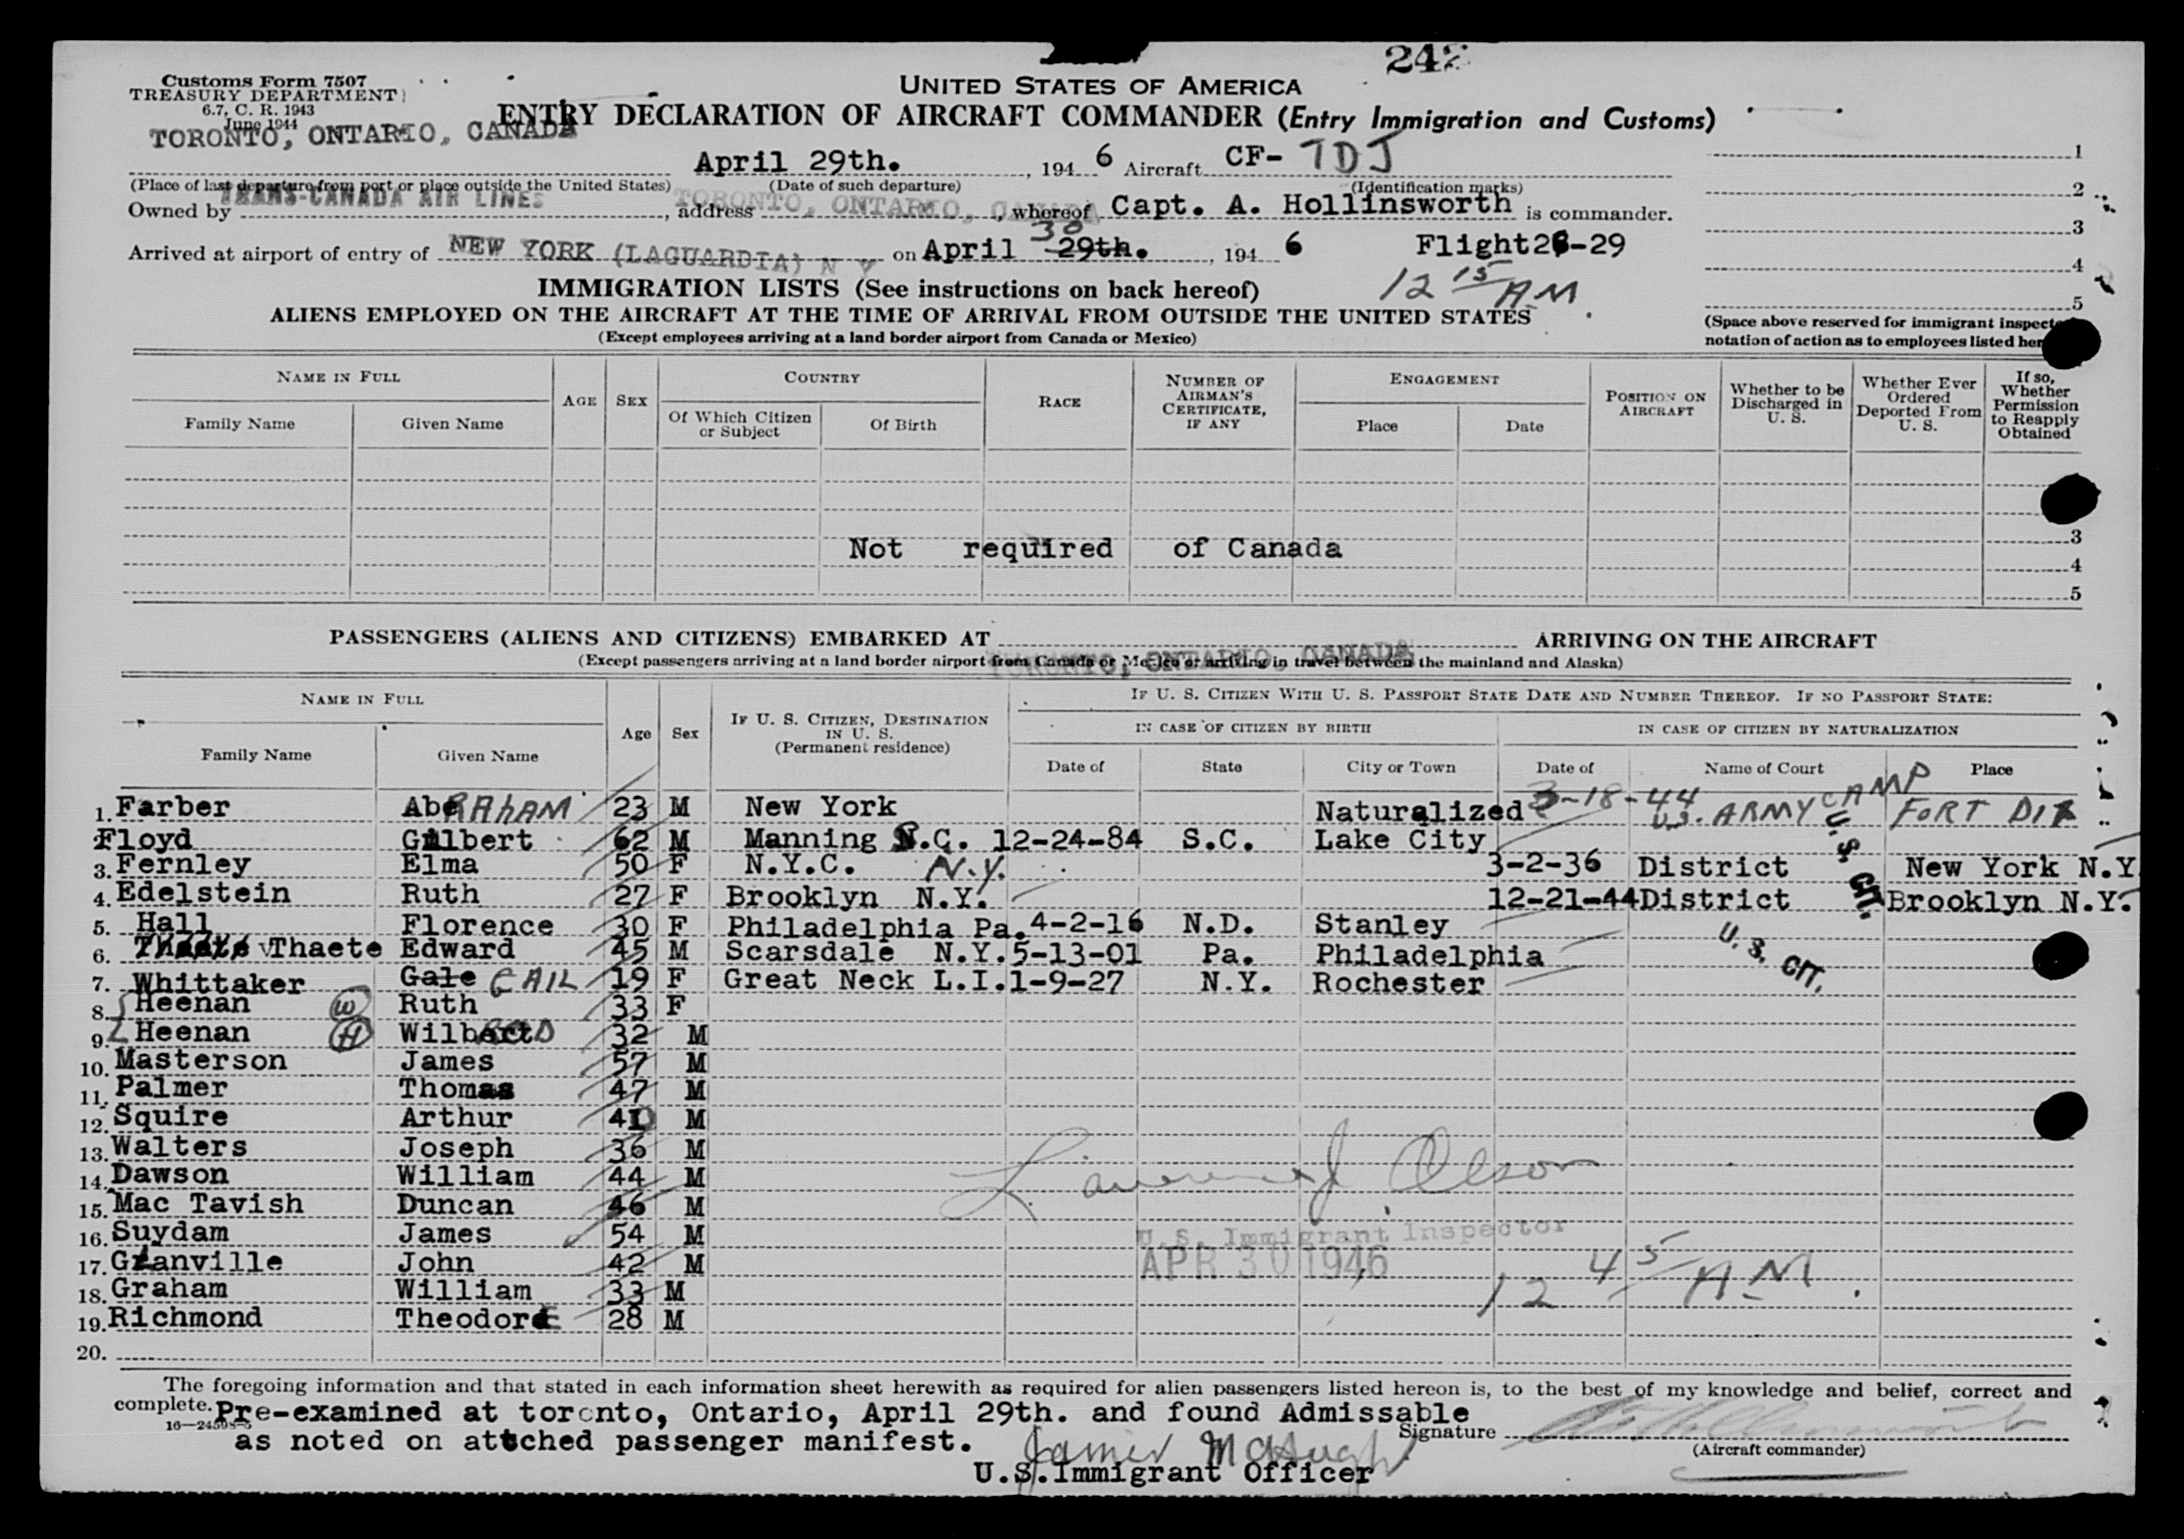 242
Customs Form 7507
TREASURY DEPARTMENT
6.7, C. R. 1943
June 1944
UNITED STATES OF AMERICA
ENTRY DECLARATION OF AIRCRAFT COMMANDER (Entry Immigration and Customs)
TORONTO, ONTARIO, CANADA April 29th. , 194 6 Aircraft CF- TDJ
(Place of last departure from port or place outside the United States) (Date of such departure) (Identification marks)
Owned by TRANS-CANADA AIR LINES , address TORONTO, ONTARIO, CANADA , whereof Capt. A. Hollinsworth is commander.
Arrived at airport of entry of NEW YORK (LAGUARDIA) N Y on April 29th. 30 , 194 6 Flight 28-29
12 15 A.M.
1
2
3
4
5
(Space above reserved for immigrant
notation of action as to employees listed
IMMIGRATION LISTS (See instructions on back hereof)
ALIENS EMPLOYED ON THE AIRCRAFT AT THE TIME OF ARRIVAL FROM OUTSIDE THE UNITED STATES
(Except employees arriving at a land border airport from Canada or Mexico)
NAME IN FULL AGE SEX COUNTRY RACE NUMBER OF AIRMAN'S CERTIFICATE, IF ANY ENGAGEMENT POSITION ON AIRCRAFT Whether to be Discharged in U. S. Whether Ever Ordered Deported From U. S. If so, Whether Permission to Reapply Obtained
Family Name Given Name Of Which Citizen or Subject Of Birth Place Date
3
Not required of Canada
4
5
PASSENGERS (ALIENS AND CITIZENS) EMBARKED AT TORONTO, ONTARIO, CANADA ARRIVING ON THE AIRCRAFT
(Except passengers arriving at a land border airport from Canada or Mexico or arriving in travel between the mainland and Alaska)
NAME IN FULL Age Sex IF U. S. CITIZEN, DESTINATION IN U. S. (Permanent residence) IF U. S. CITIZEN WITH U. S. PASSPORT STATE DATE AND NUMBER THEREOF. IF NO PASSPORT STATE:
IN CASE OF CITIZEN BY BIRTH IN CASE OF CITIZEN BY NATURALIZATION
Family Name Given Name Date of State City or Town Date of Name of Court Place
1. Farber AbRAhAM 23 M New York Naturalized 3-18-44 U.S. ARMY CAMP FORT DIX
2 Floyd Gilbert 62 M Manning S.C. 12-24-84 S.C. Lake City
3. Fernley Elma 50 F N.Y.C. N.Y. 3-2-36 District New York N.Y
4. Edelstein Ruth 27 F Brooklyn N.Y. 12-21-44 District Brooklyn N.Y.
U. S. CIT.
5. Hall Florence 30 F Philadelphia Pa. 4-2-16 N.D. Stanley
6. Thaete Edward 45 M Scarsdale N.Y. 5-13-01 Pa. Philadelphia
U. S. CIT.
7. Whittaker Gale GAIL 19 F Great Neck L.I. 1-9-27 N.Y. Rochester
8. Heenan W Ruth 33 F
9 Heenan H Wilbert 32 M
10. Masterson James 57 M
11. Palmer Thomas 47 M
12. Squire Arthur 40 M
13. Walters Joseph 36 M
14. Dawson William 44 M
15. Mac Tavish Duncan 46 M
16. Suydam James 54 M
17. Granville John 42 M
18. Graham William 33 M
19. Richmond Theodore 28 M
20.
Lawrence J. Olson
U.S. Immigrant Inspector
APR 30 1946
12 45 A.M.
The foregoing information and that stated in each information sheet herewith as required for alien passengers listed hereon is, to the best of my knowledge and belief, correct and
complete. Pre-examined at toronto, Ontario, April 29th. and found Admissable
16—24598-5
as noted on attched passenger manifest.
Signature
(Aircraft commander)
James McHugh
U.S. Immigrant Officer